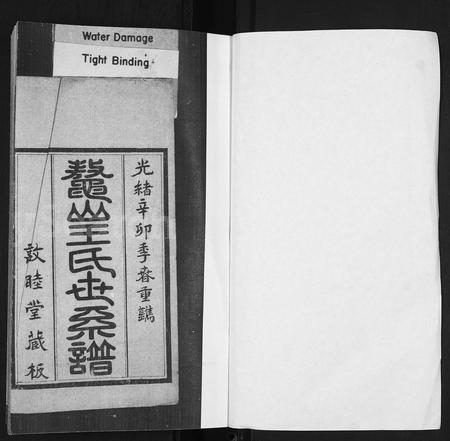 Water Damage
Tight Binding
光緒辛卯季春重鐫
鼇峯王氏世系譜
敦睦堂藏板